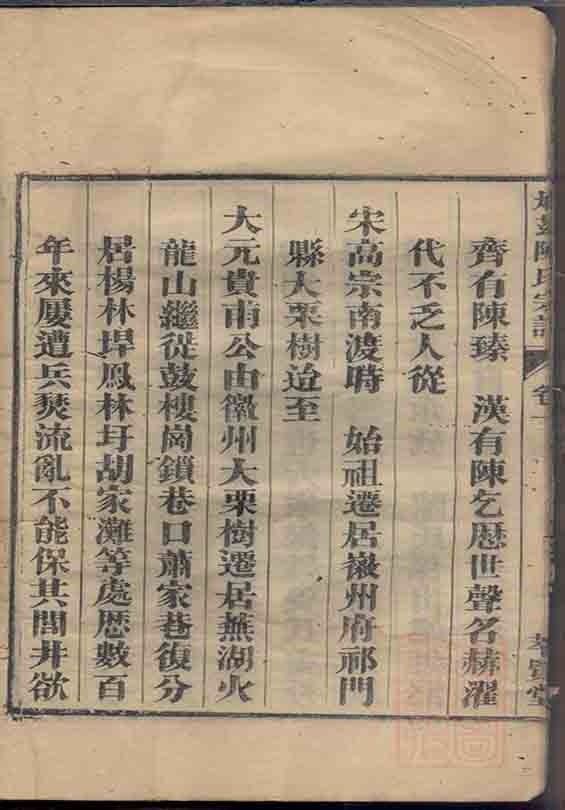 陳氏宗譜
卷一
齊有陳臻　漢有陳乞歷世聲名赫濯
代不乏人從
宋高宗南渡時　始祖遷居徽州府祁門
縣大栗樹迨至
大元貴甫公由徽州大栗樹遷居蕪湖火
龍山繼從鼓樓崗鎖巷口蕭家巷復分
居楊林垾鳳林圩胡家灘等處歷數百
年來屢遭兵燹流亂不能保其閭井欲